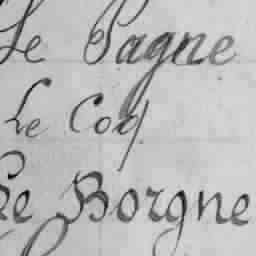 Le Pagne
Le Coq
Le Borgne